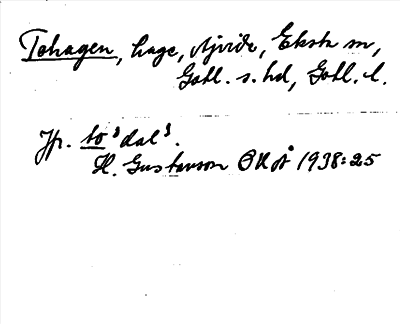 Tohagen, hage, Ajvide, Eksta sn,
Gotl. s. hd, Gotl. l.
Jfr. to 'dal'.
H. Gustavson ÖNÅ 1938:25